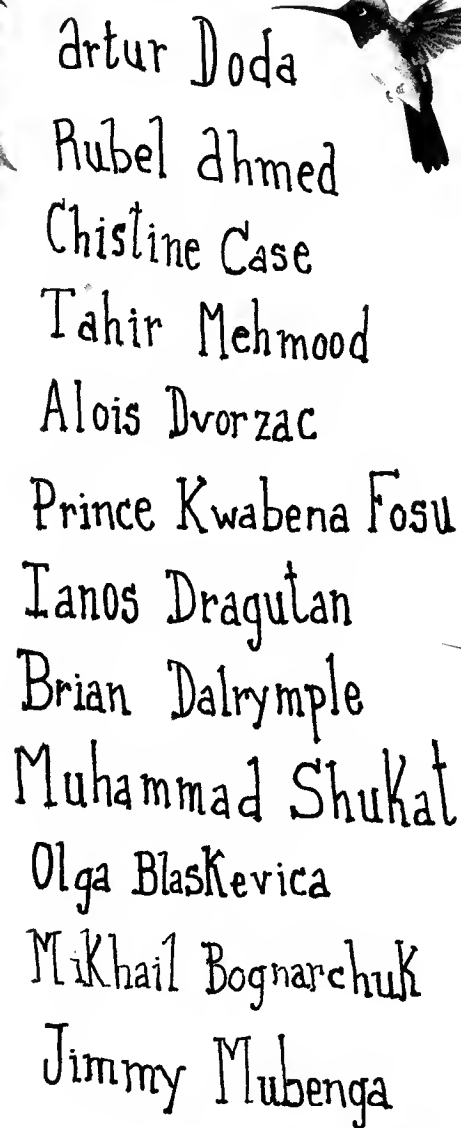 artur Doda
Rubel ahmed
Chistine Case
Tahir Mehmood
Alois Dvorzac
Prince Kwabena Fosu
Ianos Dragutan
Brian Dalrymple
Muhammad Shukat
Olga Blaskevica
Mikhail Bognarchuk
Jimmy Mubenga